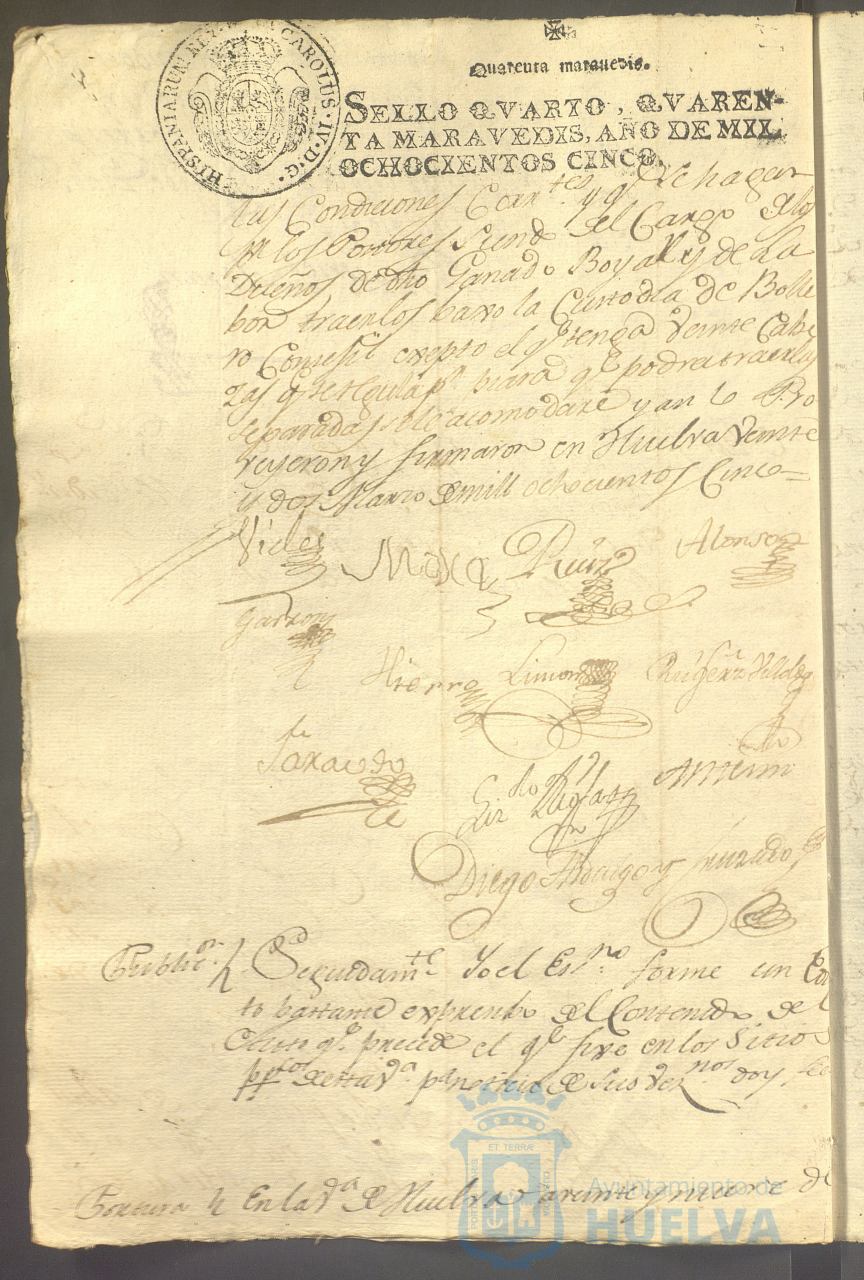 HISPANIARUM REX CAROLUS·IV·D·G·
Quarenta maravedis.
SELLO QVARTO, QVAREN-
TA MARAVEDIS, AÑO DE MIL
OCHOCIENTOS CINCO.
las Condiciones Corr.tes y q.e se hagan
los Pastores siendo del Cargo de los
Dueños de dho Ganado Boyal y de la
por traerlos baxo la Custodia de Bolle
ro Consegil exepto el q.e tenga veinte Cabe
zas q.e se regula p.r piara q.e podra traerlas
separadas si le acomodare y asi lo Pro
veyeron y firmaron en Huelva veinte
y dos Marzo de mill ochocientos Cinco=
Mora Ruiz Alonso
Garzon
Hierro Limon
Saavedra
Diego Hidalgo y Jurado
Public.on Seguidam.te Yo el Es.no forme un
to bastante expresivo del Contenido de el
auto q.e precede el q.e fixe en los Sitios
pp.cos de esta V.a p.a noticia de sus Vez.nos doy fe
En la V.a de Huelva a veinte y nueve de
ET TERRÆ
Ayuntamiento de
HUELVA